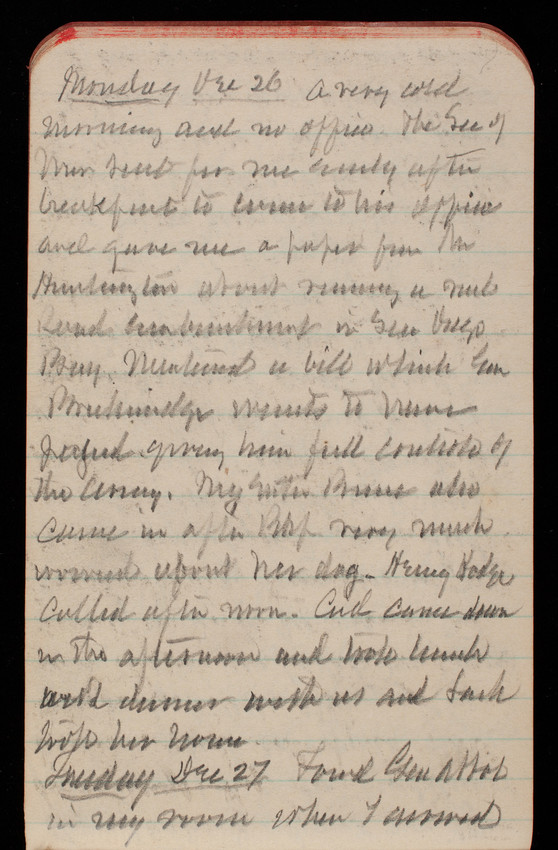 Monday Dec 26 A very cold
morning and no office. The Sec of
War sent for me early after
breakfast to come to his office
and gave me a paper from Mr
Huntington about running a rail
Road embankment in San Diego
Bay. Mentioned a bill which Gen
Breckinridge wants to have
passed giving him full control of
the Army. My sister also
came in after Bkf very much
worried about her dog. Henry Hodge
called after noon. Col came down
in the afternoon and took lunch
and dinner with us and Jack
took her home.
Tuesday Dec 27 Found Gen Abbot
in my room when I arrived